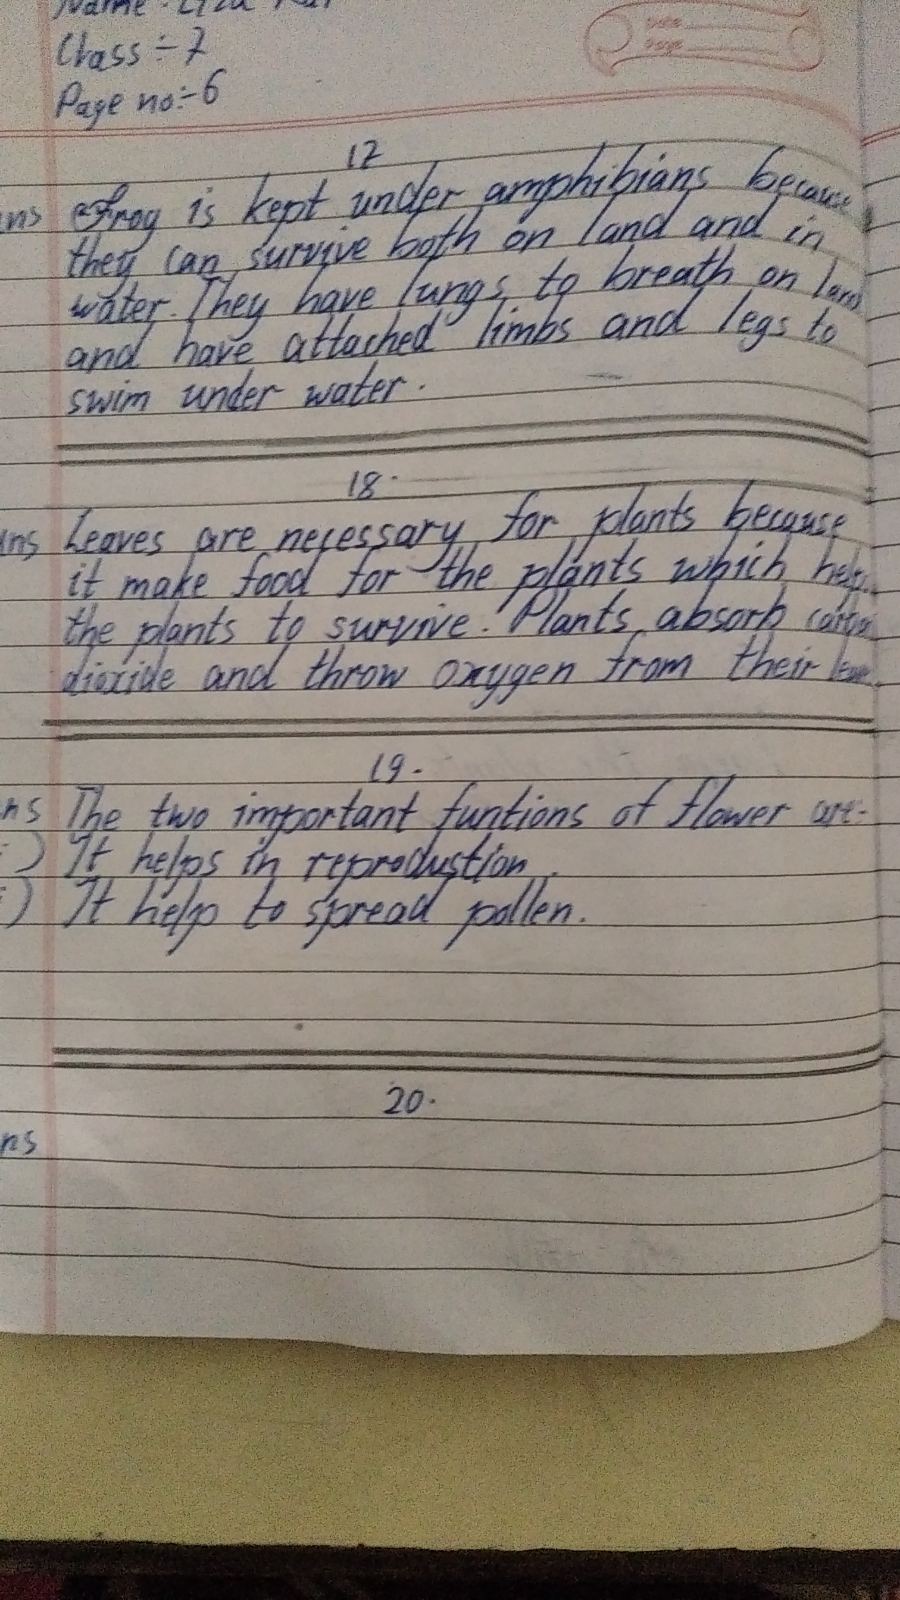 Name
Class :- 7
Page no:- 6
Date
Page
17
ns Frog is kept under amphibians because
they can survive both on land and in
water. They have lungs to breath on land
and have attached limbs and legs to
swim under water.
18.
ns Leaves are necessary for plants because
it make food for the plants which help
the plants to survive. Plants absorb carbon
dioxide and throw oxygen from their
19.
ns The two important funtions of flower are:-
) It helps in reproduction.
) It help to spread pollen.
20.
ns